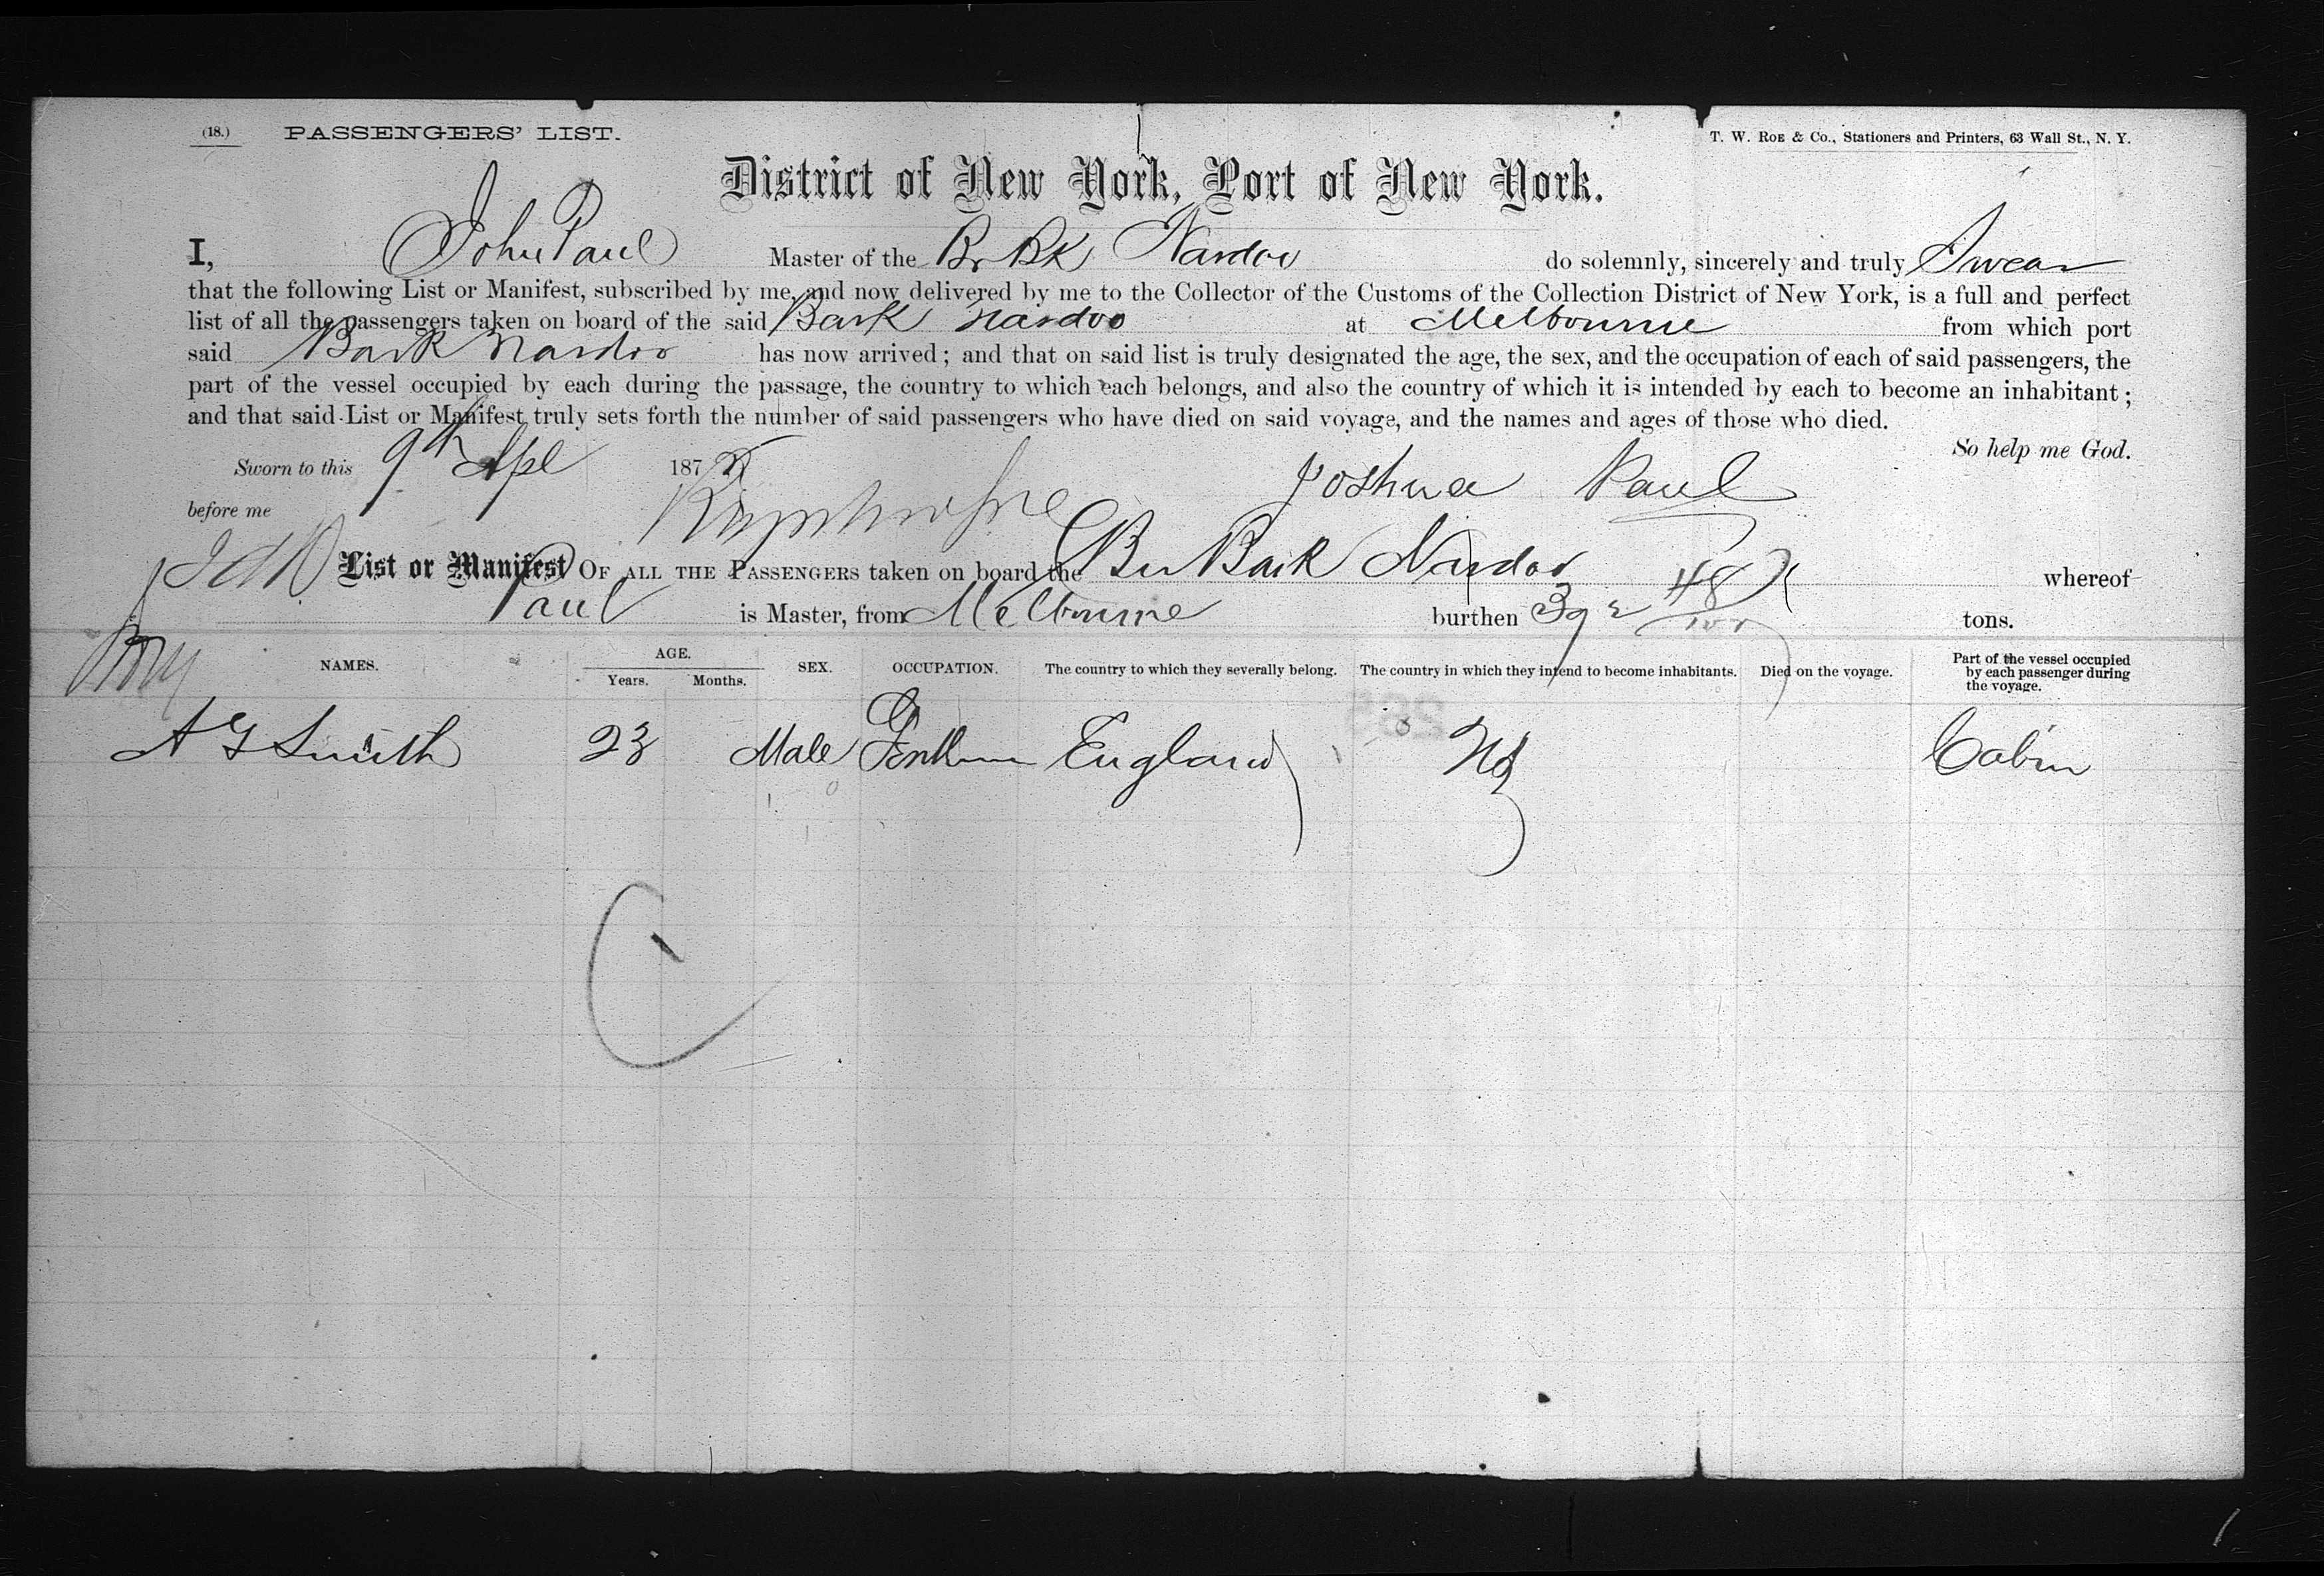 (18.) PASSENGERS' LIST.
T. W. Roe & Co., Stationers and Printers, 63 Wall St., N. Y.
District of New York, Port of New York.
I, John Paul Master of the Br Bk Nardoo do solemnly, sincerely and truly Swear
that the following List or Manifest, subscribed by me, and now delivered by me to the Collector of the Customs of the Collection District of New York, is a full and perfect
list of all the passengers taken on board of the said Bark Nardoo at Melbourne from which port
said Bark Nardoo has now arrived; and that on said list is truly designated the age, the sex, and the occupation of each of said passengers, the
part of the vessel occupied by each during the passage, the country to which each belongs, and also the country of which it is intended by each to become an inhabitant;
and that said List or Manifest truly sets forth the number of said passengers who have died on said voyage, and the names and ages of those who died.
So help me God.
Sworn to this 9th Apl 187
Joshua Paul
before me
List or Manifest OF ALL THE PASSENGERS taken on board the Br Bark Nardoo whereof
Paul is Master, from Melbourne burthen 392 48/100 tons.
NAMES. AGE. Years. Months. SEX. OCCUPATION. The country to which they severally belong. The country in which they intend to become inhabitants. Died on the voyage. Part of the vessel occupied by each passenger during the voyage.
A G Smith 23 Male England Cabin